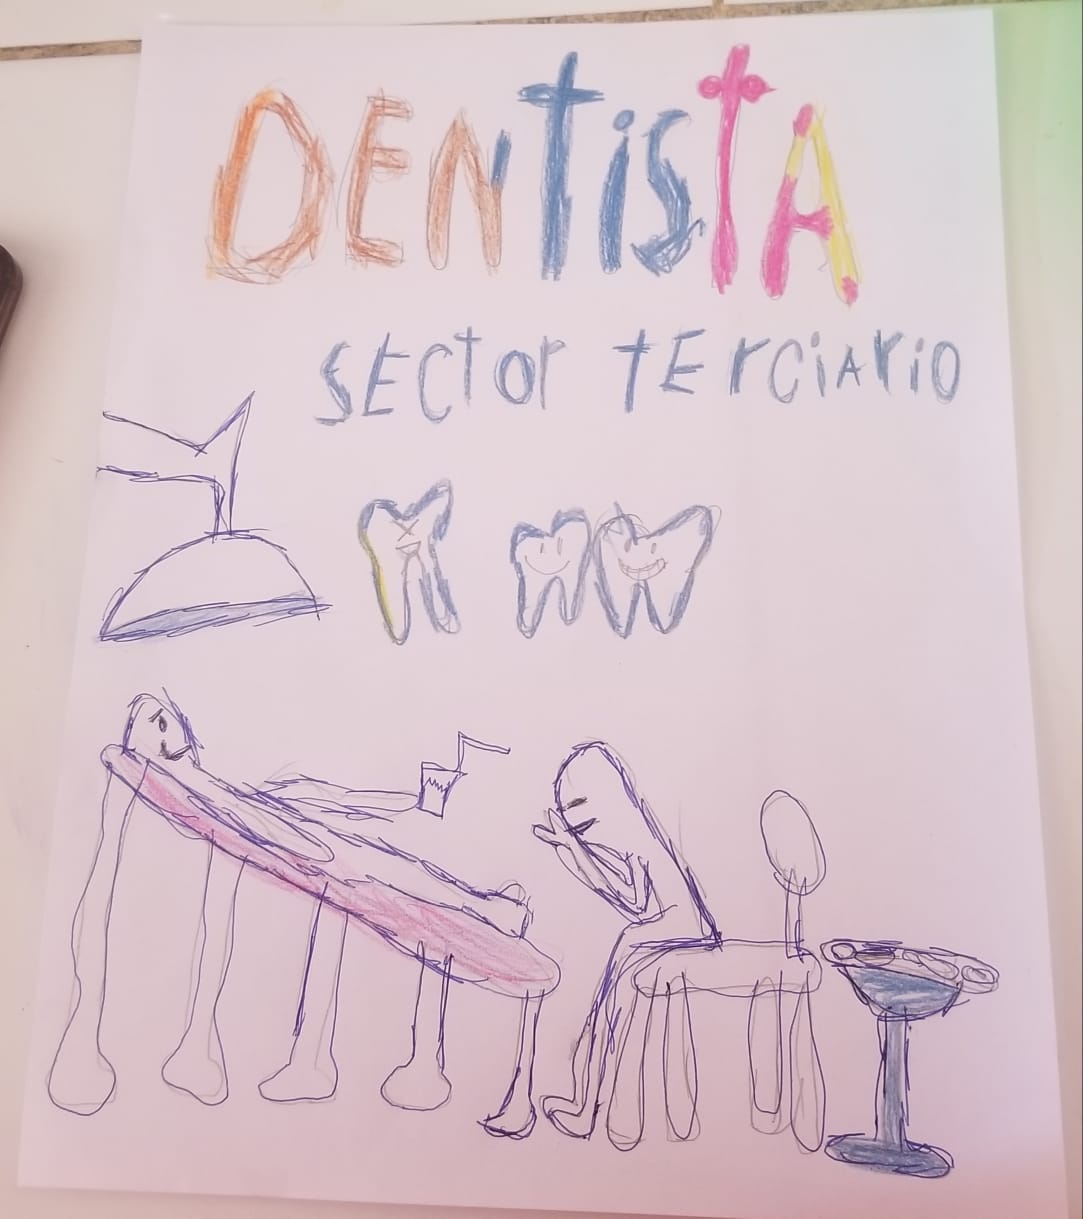 DENTiSTA
SECtor tErCiAriO